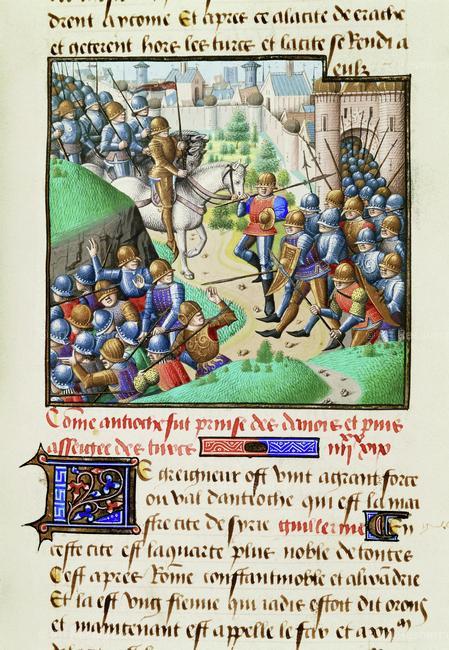 drent Ancome Et apres ce la cite de erache
et geterent hors les turcs et la cite se Rendi a
eulz
Come antioche fut prinse des danois et puis
assiegee des turcs iiii xx xix
Le greigneur ost vint a grant force
ou val dantioche qui est la mai
stre cite de syrie guilerme En
ceste cite est la quarte plus noble de toutes
Cest apres Rome constantinoble et alixandrie
Et la est ung fleuve qui iadis estoit dit orons
et maintenant est appelle le far et a xii m